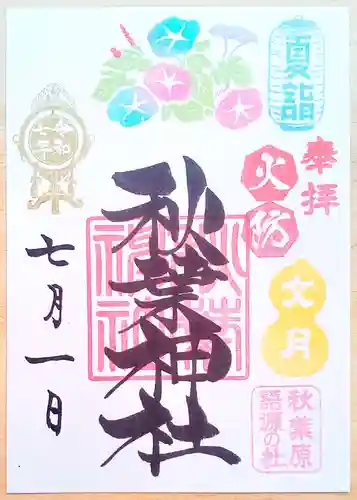 夏詣
奉拝
火防
文月
秋葉原
語源の社
秋葉神社
令和
七年
七月一日